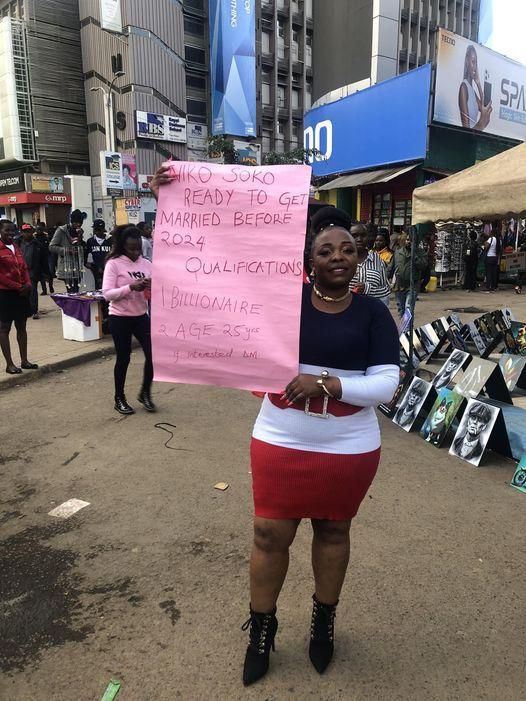 NIKO SOKO
READY TO GET
MARRIED BEFORE
2024
QUALIFICATIONS
1 BILLIONAIRE
2. AGE 25yrs
if interested DM
TECNO
SPA